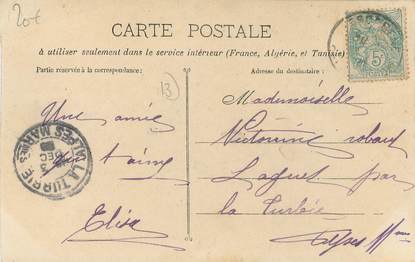 20€
CARTE POSTALE
à utiliser seulement dans le service intérieur (France, Algérie, et Tunisie)
Partie réservée à la correspondance:
Adresse du destinataire:
13
Une amie
qui t'aime
Elisa
LA TURBIE
ALPES MARMES
3
DEC
5c
Mademoiselle
Victorine
Laguet par
la Turbie
Alpes Mmes